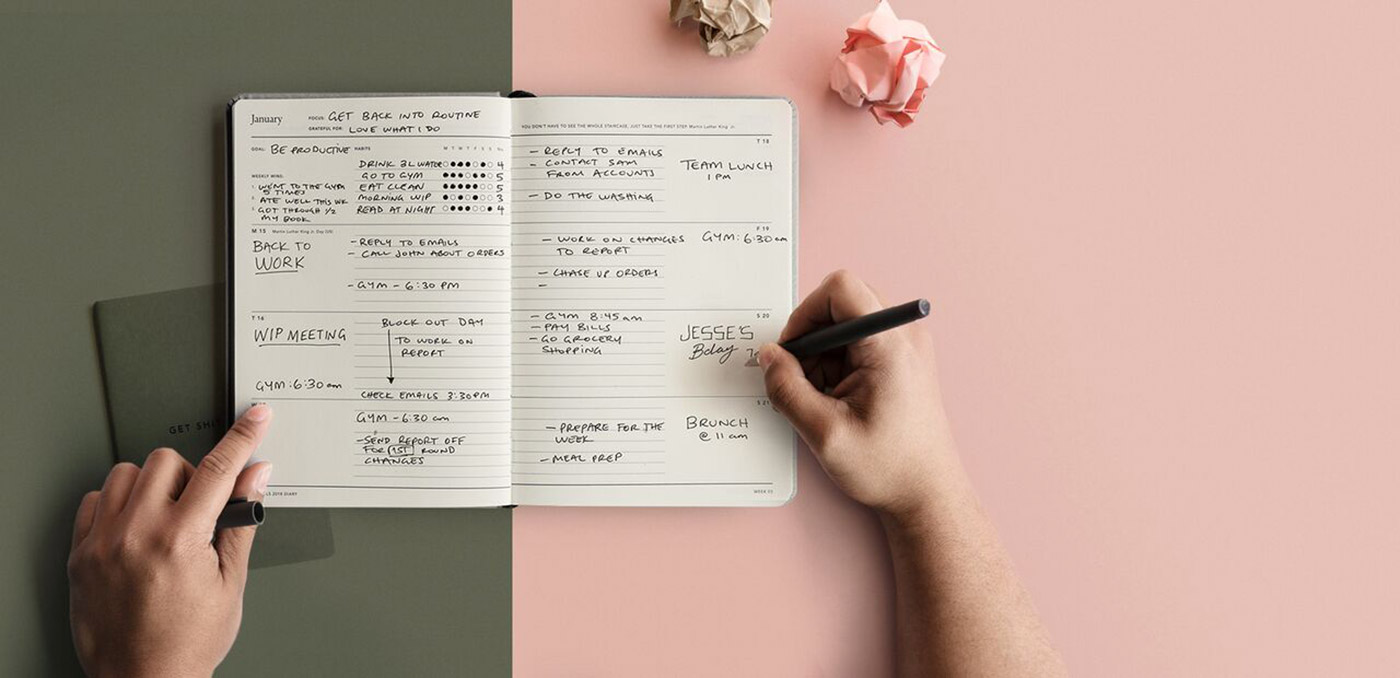 January
FOCUS: GET BACK INTO ROUTINE
GRATEFUL FOR: LOVE WHAT I DO
GOAL: BE PRODUCTIVE
HABITS M T W T F S S
DRINK 3L WATER 4
GO TO GYM 5
EAT CLEAN 5
MORNING WIP 3
READ AT NIGHT 4
WEEKLY WINS:
1. WENT TO THE GYM
5 TIMES
2. ATE WELL THIS WK
3. GOT THROUGH 1/2
MY BOOK
M 15 Martin Luther King Jr. Day (US)
BACK TO
WORK
- REPLY TO EMAILS
- CALL JOHN ABOUT ORDERS
- GYM - 6:30 PM
T 16
WIP MEETING
GYM: 6:30 am
BLOCK OUT DAY
TO WORK ON
REPORT
CHECK EMAILS 3:30PM
GYM - 6:30 am
- SEND REPORT OFF
FOR 1ST ROUND
CHANGES
LS 2018 DIARY
YOU DON'T HAVE TO SEE THE WHOLE STAIRCASE, JUST TAKE THE FIRST STEP. Martin Luther King Jr.
T 18
- REPLY TO EMAILS
- CONTACT SAM
FROM ACCOUNTS
- DO THE WASHING
TEAM LUNCH
1 PM
F 19
- WORK ON CHANGES
TO REPORT
- CHASE UP ORDERS
-
GYM: 6:30 am
S 20
- GYM 8:45 am
- PAY BILLS
- GO GROCERY
SHOPPING
JESSE'S
Bday
S 21
- PREPARE FOR THE
WEEK
- MEAL PREP
BRUNCH
@ 11 am
WEEK 03
GET SH